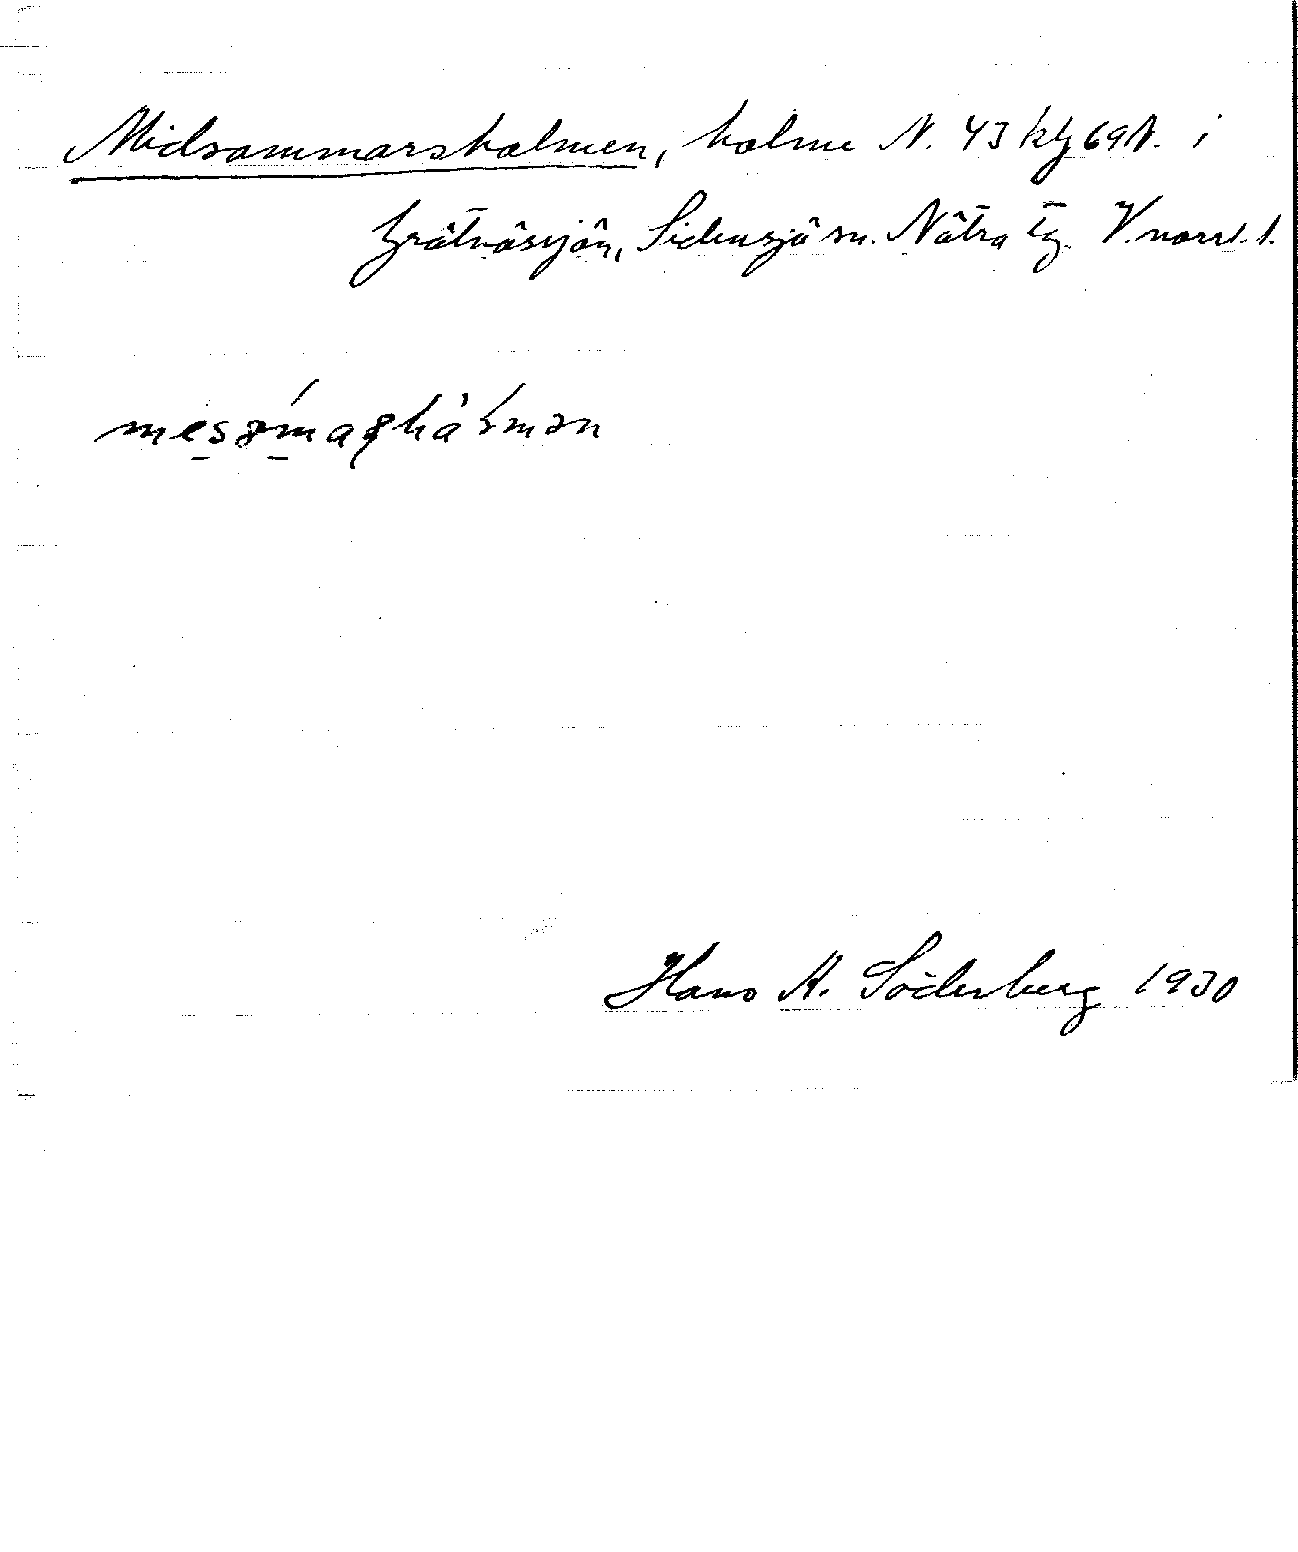 Midsommarsholmen, holme N. 43 klj 69 N. i
Grätnäsjön, Sidensjö sn. Nätra tg. V.norrl. l.
Hans A. Söderberg 1930